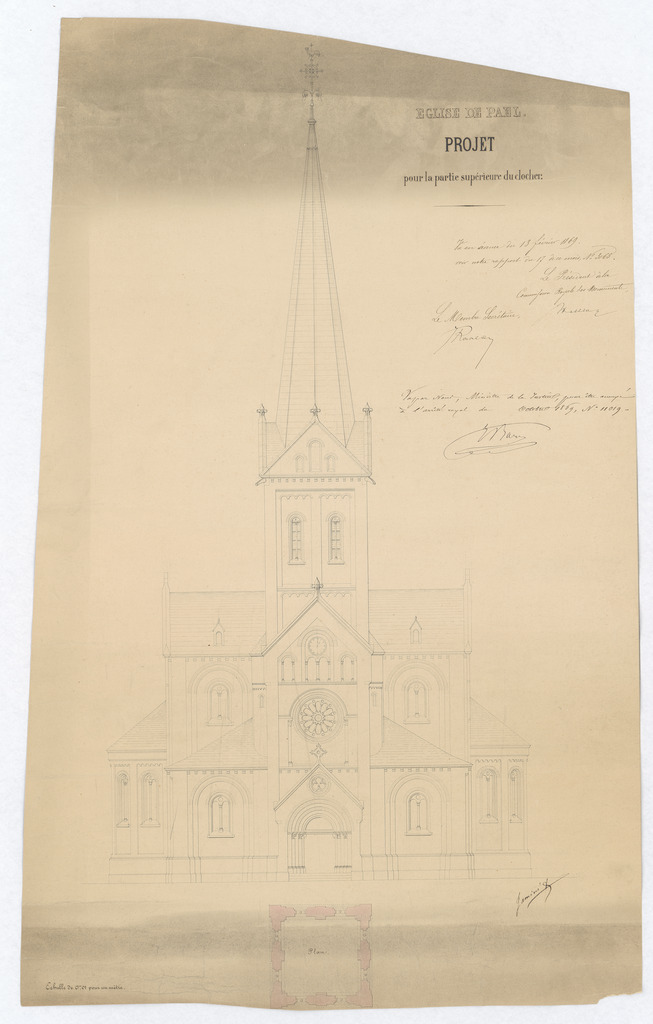 EGLISE DE PAEL.
PROJET
pour la partie supérieure du clocher.
Vu en séance du 13 février 1869.
Le Président de la
Commission Royale des Monuments.
Le Membre Secrétaire,
Vu par Nous, Ministre de la Justice, pour être annexé
à l'arrêté royal du 1869, N° 11019
Plan
Echelle de 0m,01 pour un mètre.